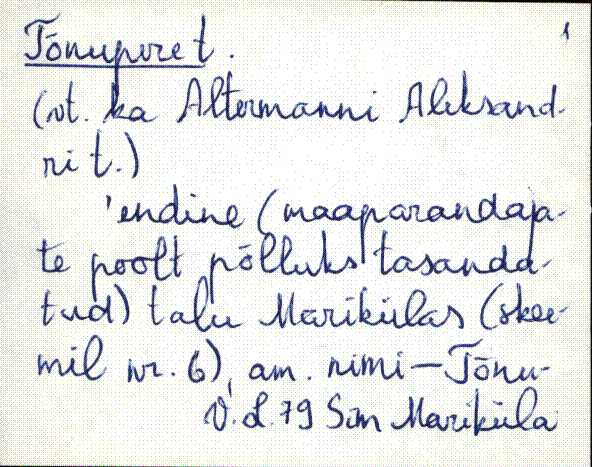 Tõnupere t. 1
(vt. ka Altermanni Aleksand-
ri t.)
'endine (maaparandaja-
te poolt põlluks tasanda-
tud) talu Marikülas (skee-
mil nr. 6), am. nimi - Tõnu-
V. L. 79 Sim Mariküla